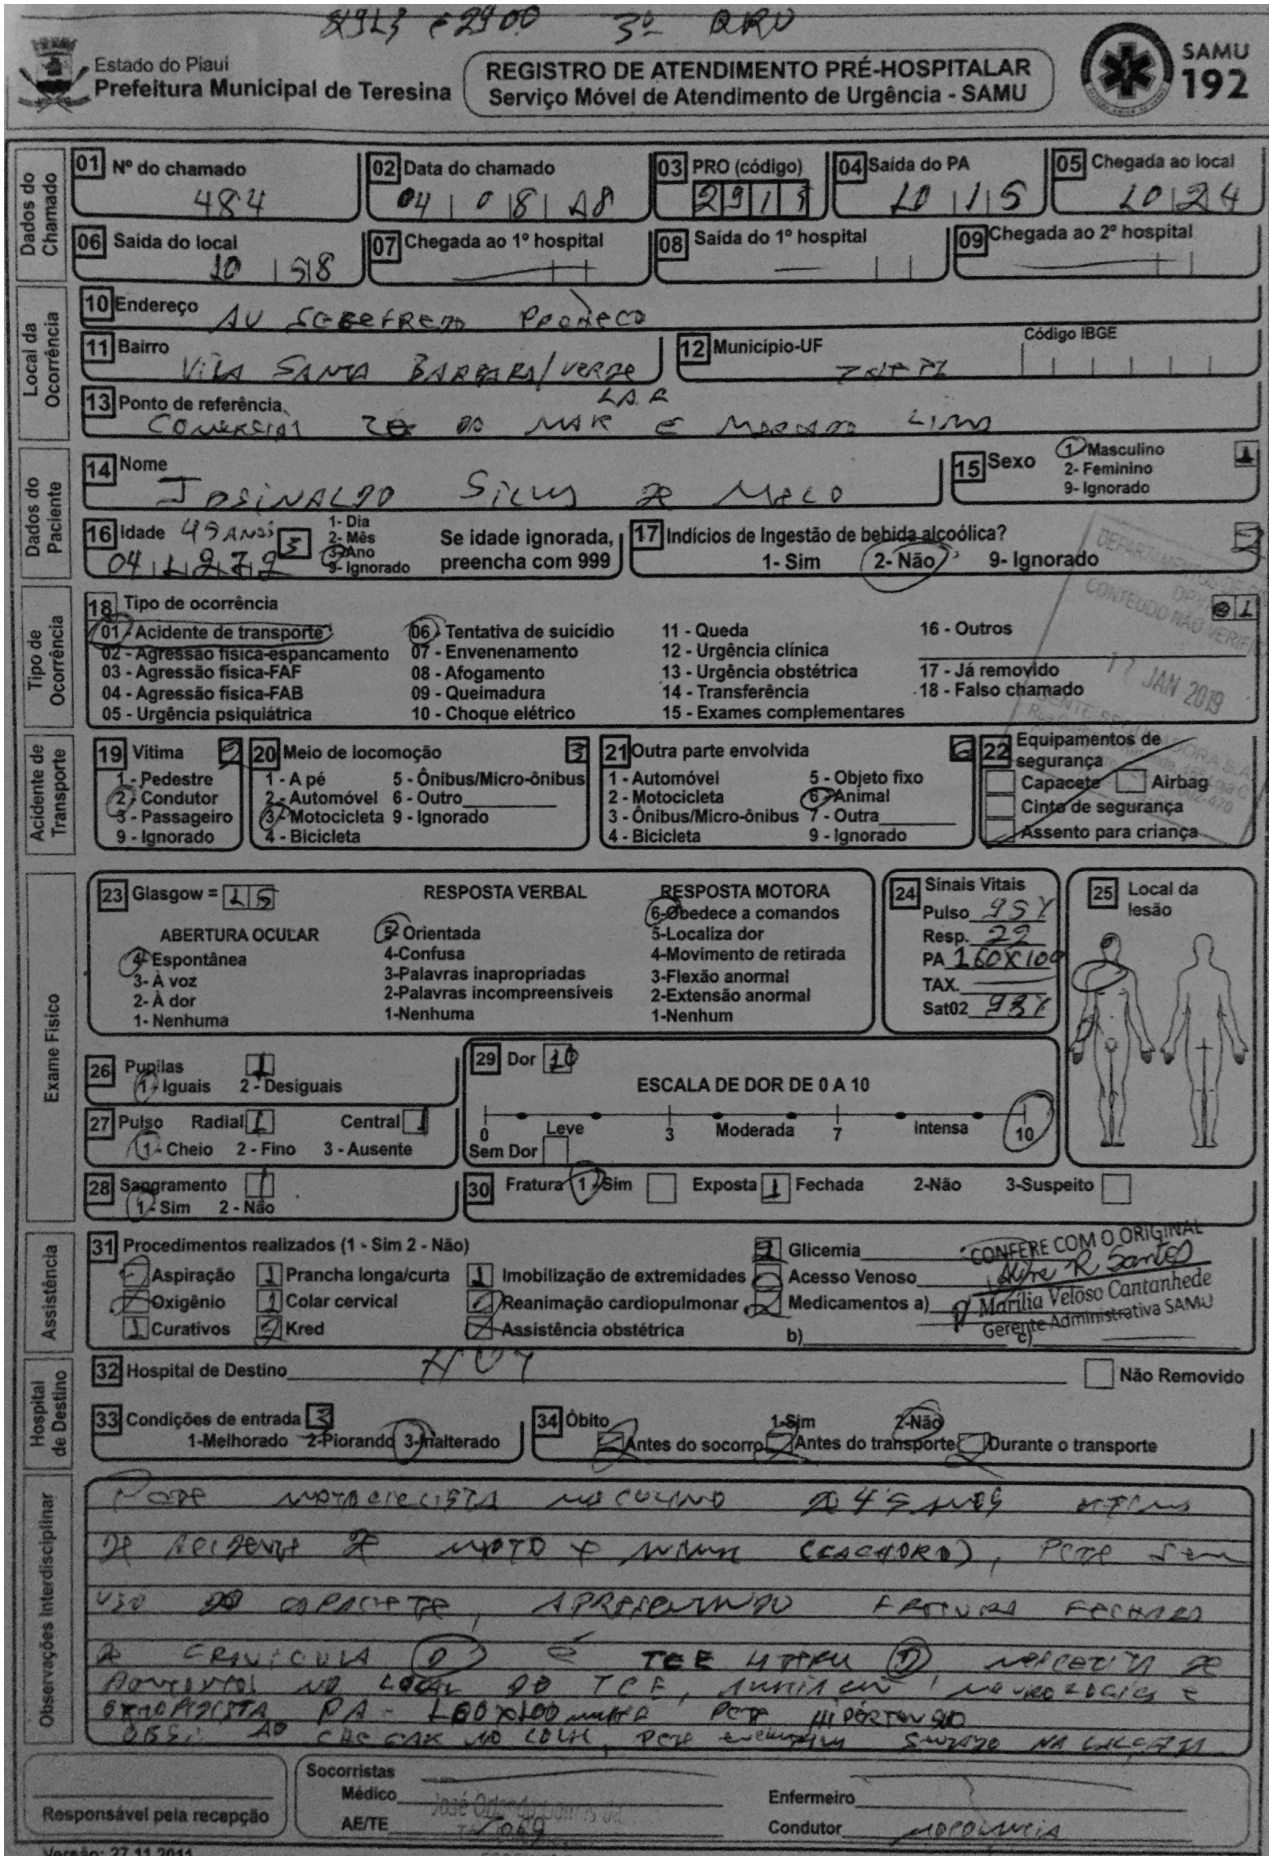 3º QRU
Estado do Piauí
Prefeitura Municipal de Teresina
REGISTRO DE ATENDIMENTO PRÉ-HOSPITALAR
Serviço Móvel de Atendimento de Urgência - SAMU
SAMU
192
Dados do Chamado
01 Nº do chamado
484
02 Data do chamado
04 08 18
03 PRO (código)
2913
04 Saída do PA
10 15
05 Chegada ao local
10 24
06 Saída do local
10 58
07 Chegada ao 1º hospital
08 Saída do 1º hospital
09 Chegada ao 2º hospital
Local da Ocorrência
10 Endereço
AV
11 Bairro
VILA SANTA BARBARA/VERDE
LAR
12 Município-UF
Código IBGE
13 Ponto de referência
COMERCIAL ZÉ DO MAR E MERCADO LIMA
Dados do Paciente
14 Nome
JOSINALDO SILVA DE MELO
15 Sexo
1- Masculino
2- Feminino
9- Ignorado
1
16 Idade 45 ANOS 3
1- Dia
2- Mês
3- Ano
9- Ignorado
Se idade ignorada,
preencha com 999
17 Indícios de Ingestão de bebida alcoólica?
1- Sim 2- Não 9- Ignorado
2
Tipo de Ocorrência
18 Tipo de ocorrência
01
01 - Acidente de transporte
02 - Agressão física-espancamento
03 - Agressão física-FAF
04 - Agressão física-FAB
05 - Urgência psiquiátrica
06 - Tentativa de suicídio
07 - Envenenamento
08 - Afogamento
09 - Queimadura
10 - Choque elétrico
11 - Queda
12 - Urgência clínica
13 - Urgência obstétrica
14 - Transferência
15 - Exames complementares
16 - Outros
17 - Já removido
18 - Falso chamado
CONTEÚDO NÃO
17 JAN 2019
Acidente de Transporte
19 Vítima 2
1 - Pedestre
2 - Condutor
3 - Passageiro
9 - Ignorado
20 Meio de locomoção 3
1 - A pé
2 - Automóvel
3 - Motocicleta
4 - Bicicleta
5 - Ônibus/Micro-ônibus
6 - Outro
9 - Ignorado
21 Outra parte envolvida 6
1 - Automóvel
2 - Motocicleta
3 - Ônibus/Micro-ônibus
4 - Bicicleta
5 - Objeto fixo
6 - Animal
7 - Outra
9 - Ignorado
22 Equipamentos de
segurança
Capacete Airbag
Cinto de segurança
Assento para criança
Exame Físico
23 Glasgow = 15
ABERTURA OCULAR
4-Espontânea
3- À voz
2- À dor
1- Nenhuma
RESPOSTA VERBAL
5-Orientada
4-Confusa
3-Palavras inapropriadas
2-Palavras incompreensíveis
1-Nenhuma
RESPOSTA MOTORA
6-Obedece a comandos
5-Localiza dor
4-Movimento de retirada
3-Flexão anormal
2-Extensão anormal
1-Nenhum
24 Sinais Vitais
Pulso
Resp. 22
PA 160X100
TAX.
Sat02 93%
25 Local da
lesão
26 Pupilas 1
1- Iguais 2 - Desiguais
27 Pulso Radial 1 Central 1
1- Cheio 2 - Fino 3 - Ausente
28 Sangramento 1
1- Sim 2 - Não
29 Dor 10
ESCALA DE DOR DE 0 A 10
0 Leve 3 Moderada 7 Intensa 10
Sem Dor
30 Fratura 1- Sim Exposta 1 Fechada 2-Não 3-Suspeito
Assistência
31 Procedimentos realizados (1 - Sim 2 - Não)
Aspiração
Oxigênio
1 Curativos
1 Prancha longa/curta
1 Colar cervical
2 Kred
1 Imobilização de extremidades
2 Reanimação cardiopulmonar
2 Assistência obstétrica
Glicemia
Acesso Venoso
Medicamentos a)
b)
c)
CONFERE COM O ORIGINAL
Marília Veloso Cantanhede
Gerente Administrativa SAMU
Hospital de Destino
32 Hospital de Destino HUT
Não Removido
33 Condições de entrada 3
1-Melhorado 2-Piorando 3-Inalterado
34 Óbito 1-Sim 2-Não
Antes do socorro Antes do transporte Durante o transporte
Observações Interdisciplinar
PCTE MOTOCICLISTA MASCULINO DE 45 ANOS VITIMA
DE ACIDENTE DE MOTO X ANIMAL (CACHORO), PCTE SEM
USO DO CAPACETE, APRESENTANDO FRATURA FECHADA
DE CLAVICULA D E TCE
NO LOCAL DO TCE,
PA- 160X100 PCTE HIPERTENSO
OBS: AO CHEGAR NO LOCAL, PCTE SENTADO NA CALÇADA
Responsável pela recepção
Socorristas
Médico
AE/TE
Enfermeiro
Condutor
Versão: 27.11.2011